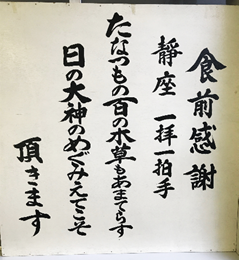 食前感謝
靜座 一拝一拍手
たなつもの百の木草もあまてらす
日の大神のめぐみえてこそ
頂きます